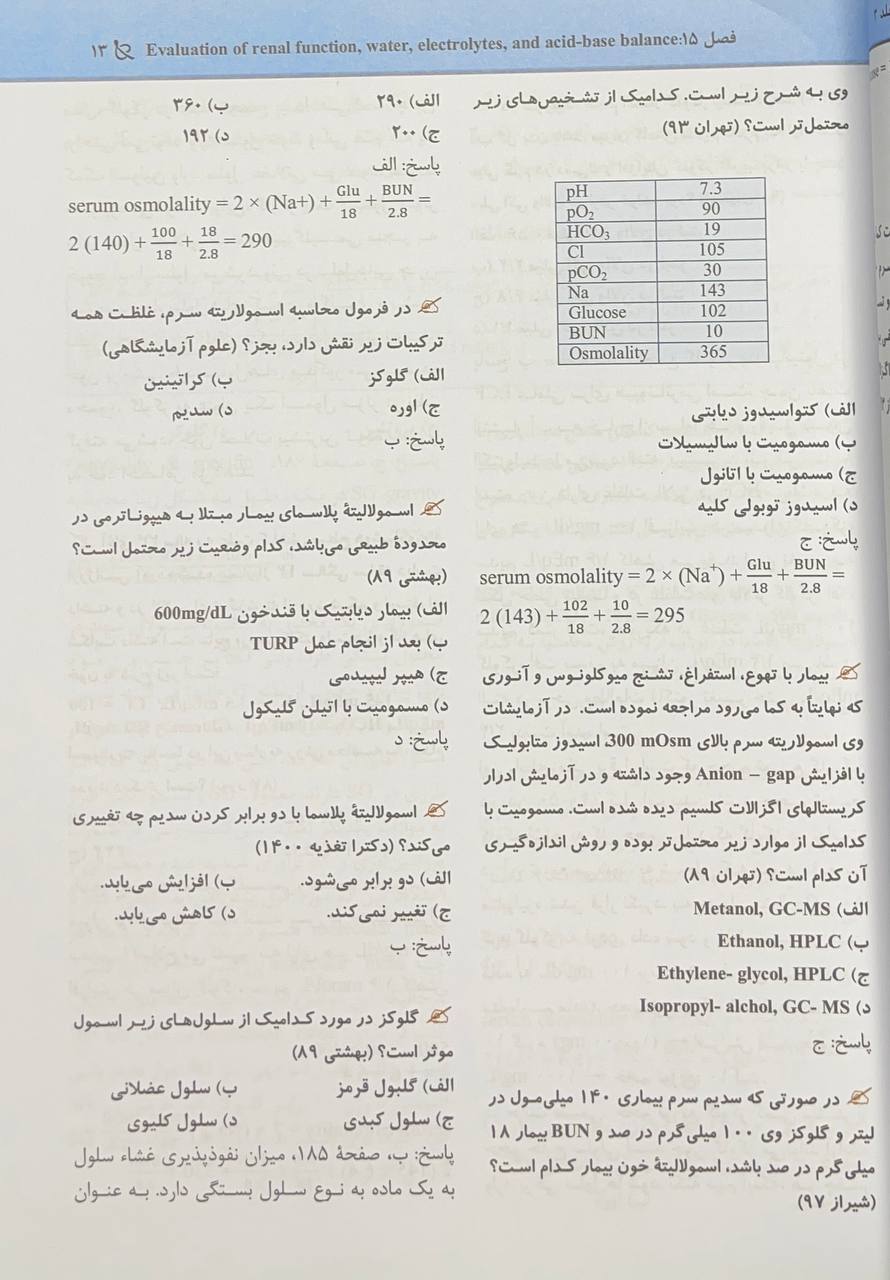 فصل ۱۵:Evaluation of renal function, water, electrolytes, and acid-base balance ۱۳
وی به شرح زیر است. کدامیک از تشخیص‌های زیر
محتمل‌تر است؟ (تهران ۹۳)
pH 7.3
pO₂ 90
HCO₃ 19
Cl 105
pCO₂ 30
Na 143
Glucose 102
BUN 10
Osmolality 365
الف) کتواسیدوز دیابتی
ب) مسمومیت با سالیسیلات
ج) مسمومیت با اتانول
د) اسیدوز توبولی کلیه
پاسخ: ج
serum osmolality = 2 × (Na⁺) + Glu/18 + BUN/2.8 =
2 (143) + 102/18 + 10/2.8 = 295
بیمار با تهوع، استفراغ، تشنج میوکلونوس و آنوری
که نهایتاً به کما می‌رود مراجعه نموده است. در آزمایشات
وی اسمولاریته سرم بالای 300 mOsm، اسیدوز متابولیک
با افزایش Anion – gap وجود داشته و در آزمایش ادرار
کریستالهای اگزالات کلسیم دیده شده است. مسمومیت با
کدامیک از موارد زیر محتمل‌تر بوده و روش اندازه‌گیری
آن کدام است؟ (تهران ۸۹)
الف) Metanol, GC-MS
ب) Ethanol, HPLC
ج) Ethylene- glycol, HPLC
د) Isopropyl- alchol, GC- MS
پاسخ: ج
در صورتی که سدیم سرم بیماری ۱۴۰ میلی‌مول در
لیتر و گلوکز وی ۱۰۰ میلی گرم در صد و BUN بیمار ۱۸
میلی گرم در صد باشد، اسمولالیتهٔ خون بیمار کدام است؟
(شیراز ۹۷)
الف) ۲۹۰ ب) ۳۶۰
ج) ۲۰۰ د) ۱۹۲
پاسخ: الف
serum osmolality = 2 × (Na+) + Glu/18 + BUN/2.8 =
2 (140) + 100/18 + 18/2.8 = 290
در فرمول محاسبه اسمولاریته سرم، غلظت همه
ترکیبات زیر نقش دارد، بجز؟ (علوم آزمایشگاهی)
الف) گلوکز ب) کراتینین
ج) اوره د) سدیم
پاسخ: ب
اسمولالیتهٔ پلاسمای بیمار مبتلا به هیپوناترمی در
محدودهٔ طبیعی می‌باشد، کدام وضعیت زیر محتمل است؟
(بهشتی ۸۹)
الف) بیمار دیابتیک با قندخون 600mg/dL
ب) بعد از انجام عمل TURP
ج) هیپر لیپیدمی
د) مسمومیت با اتیلن گلیکول
پاسخ: د
اسمولالیتهٔ پلاسما با دو برابر کردن سدیم چه تغییری
می‌کند؟ (دکترا تغذیه ۱۴۰۰)
الف) دو برابر می‌شود. ب) افزایش می‌یابد.
ج) تغییر نمی‌کند. د) کاهش می‌یابد.
پاسخ: ب
گلوکز در مورد کدامیک از سلول‌های زیر اسمول
موثر است؟ (بهشتی ۸۹)
الف) گلبول قرمز ب) سلول عضلانی
ج) سلول کبدی د) سلول کلیوی
پاسخ: ب، صفحهٔ ۱۸۵، میزان نفوذپذیری غشاء سلول
به یک ماده به نوع سلول بستگی دارد. به عنوان